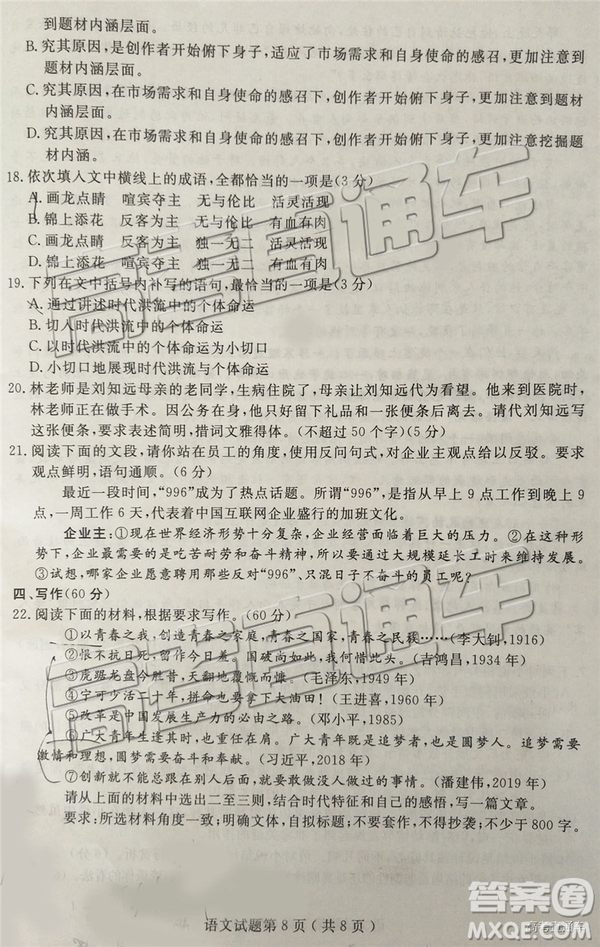 到题材内涵层面。
B. 究其原因，是创作者开始俯下身子，适应了市场需求和自身使命的感召，更加注意到
题材内涵层面。
C. 究其原因，在市场需求和自身使命的感召下，创作者开始俯下身子，更加注意到题材
内涵层面。
D. 究其原因，在市场需求和自身使命的感召下，创作者开始俯下身子，更加注意挖掘题
材内涵。
18. 依次填入文中横线上的成语，全都恰当的一项是(3 分)
A. 画龙点睛 喧宾夺主 无与伦比 活灵活现
B. 锦上添花 反客为主 无与伦比 有血有肉
C. 画龙点睛 反客为主 独一无二 活灵活现
D. 锦上添花 喧宾夺主 独一无二 有血有肉
19. 下列在文中括号内补写的语句，最恰当的一项是(3 分)
A. 通过讲述时代洪流中的个体命运
B. 切入时代洪流中的个体命运
C. 以时代洪流中的个体命运为小切口
D. 小切口地展现时代洪流与个体命运
20. 林老师是刘知远母亲的老同学，生病住院了，母亲让刘知远代为看望。他来到医院时，
林老师正在做手术。因公务在身，他只能留下礼品和一张便条后离去。请代刘知远写
这张便条，要求表述简明，措词文雅得体。(不超过 50 个字)(5 分)
21. 阅读下面的文段，请你站在员工的角度，使用反问句式，对企业主观点给以反驳。要求
观点鲜明，语句通顺。(6 分)
最近一段时间，“996”成为了热点话题。所谓“996”，是指从早上 9 点工作到晚上 9
点，一周工作 6 天，代表着中国互联网企业盛行的加班文化。
企业主：①现在世界经济形势十分复杂，企业经营面临着巨大的压力。②在这种形
势下，企业最需要的就是忍耐和奋斗精神，所以要通过大规模延长工时来维持发展。
③试想，哪家企业愿意要那些反对“996”、只混日子不奋斗的员工呢？
四、写作(60 分)
22. 阅读下面的材料，根据要求写作。(60 分)
①以青春之我，创造青春之家庭，青春之国家，青春之民族……(李大钊，1916)
②恨不抗日死，留作今日羞。国破尚如此，我何惜此头。(吉鸿昌，1934 年)
③虎踞龙盘今胜昔，天翻地覆慨而慷。(毛泽东，1949 年)
④宁可少活二十年，拼命也要拿下大油田！(王进喜，1960 年)
⑤改革是中国发展生产力的必由之路。(邓小平，1985)
⑥广大青年生逢其时，也重任在肩。广大青年既是追梦者，也是圆梦人。追梦需要
激情和理想，圆梦需要奋斗和奉献。(习近平，2018 年)
⑦创新就不能总是跟在别人后面，要敢于做没人做过的事情。(潘建伟，2019 年)
请从上面的材料中选出二至三则，结合时代特征和自己的感悟，写一篇文章。
要求：所选材料角度一致；明确文体，自拟标题；不要套作，不得抄袭；不少于 800 字。
语文试题第 8 页（共 8 页）
答案圈
MXQE.COM